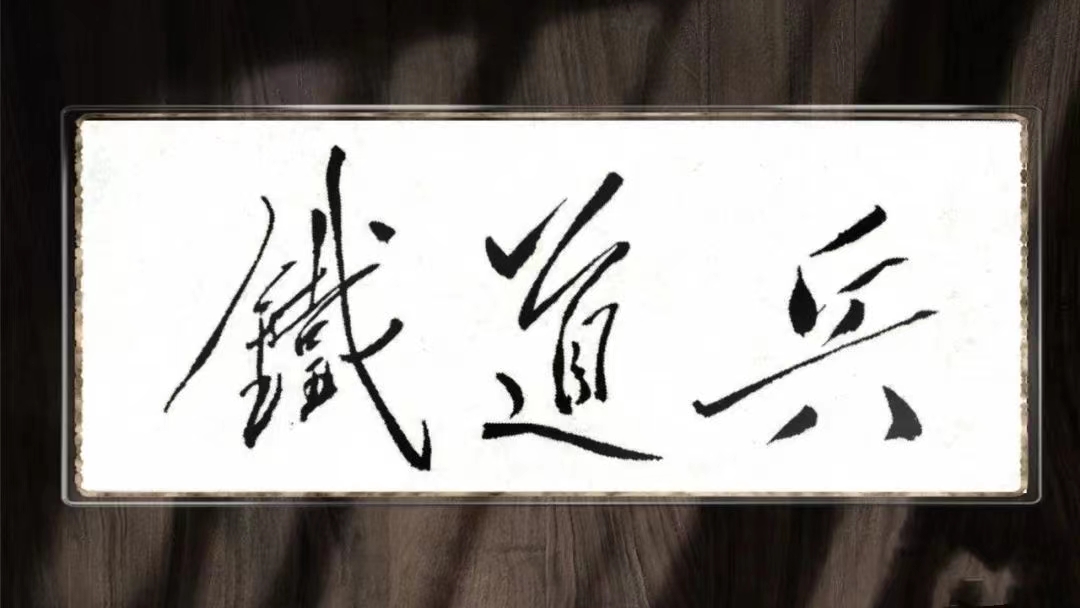 鐵道兵